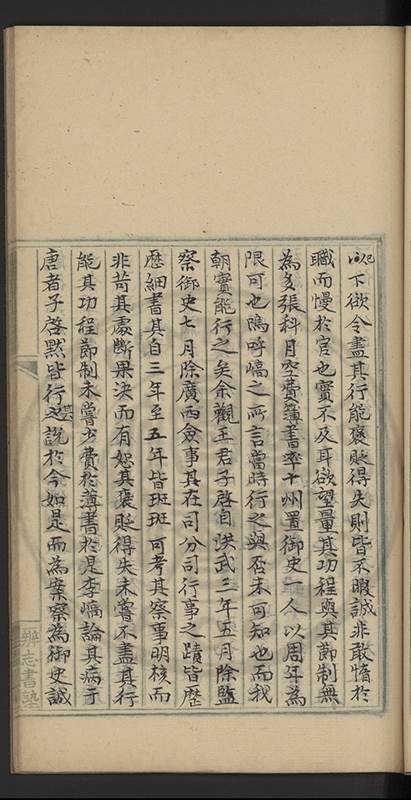 以下欲令盡其行能褒貶得失則皆不暇誠非敢惰於
職而慢於官也實不及耳欲望量其功程與其節制無
為多張科目空費簿書率十州置御史一人以周年為
限可也嗚呼嶠之所言當時行之與否未可知也而我
朝實能行之矣余觀王君子啓自洪武三年五月除監
察御史七月除廣西僉事其在司分司行事之蹟皆歷
歷細書其自三年至五年皆班班可考其察事明核而
非苛其處斷果決而有恕其褒貶得失未嘗不盡其行
能其功程節制未嘗少費於薄書於是李嶠論其病于
唐者子啓默皆行之說於今如是而為案察為御史誠
辨志書塾